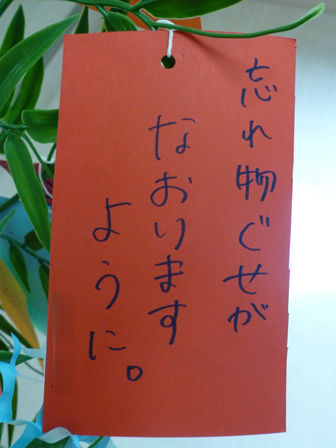 忘れ物ぐせが
なおります
ように。